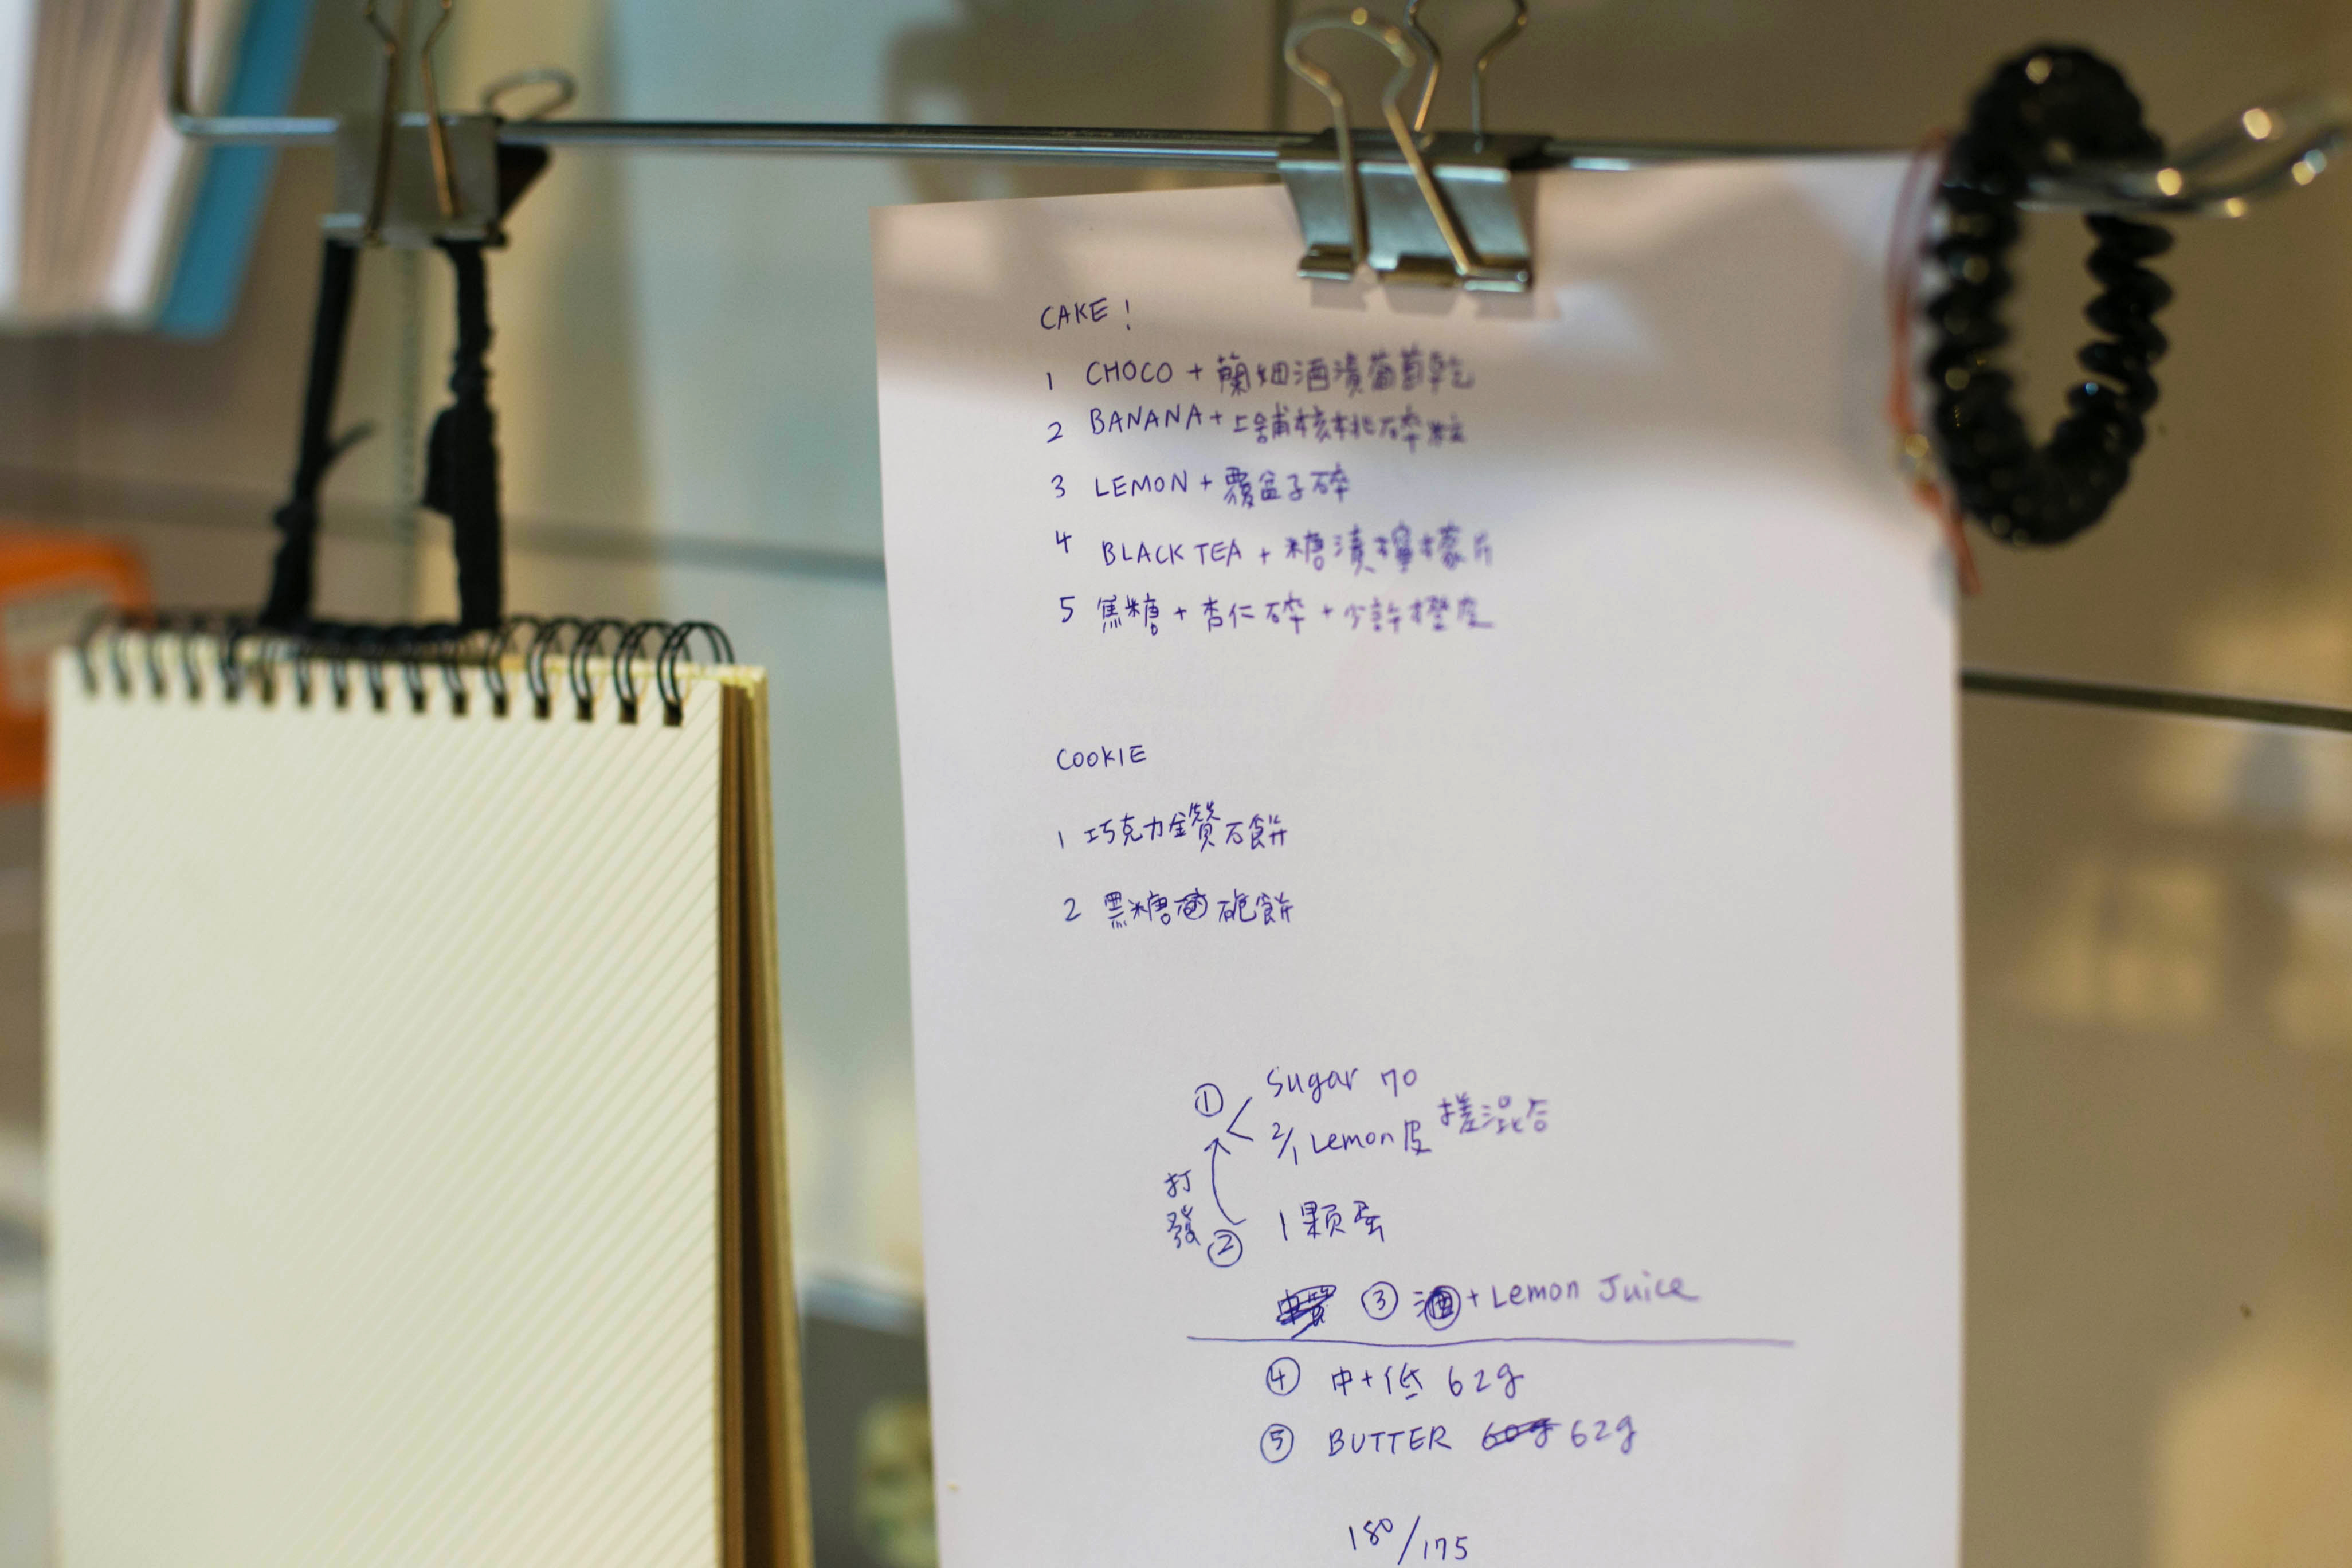 CAKE!
1 CHOCO + 蘭姆酒漬葡萄乾
2 BANANA + 上鋪核桃碎粒
3 LEMON + 覆盆子碎
4 BLACK TEA + 糖漬檸檬片
5 焦糖 + 杏仁碎 + 少許橙皮
COOKIE
1 巧克力鑽石餅
2 黑糖 砲餅
① Sugar 70
2/1 Lemon皮 搓混合
打發
② 1顆蛋
③ + Lemon Juice
④ 中+低 62g
⑤ BUTTER 60g 62g
180/175